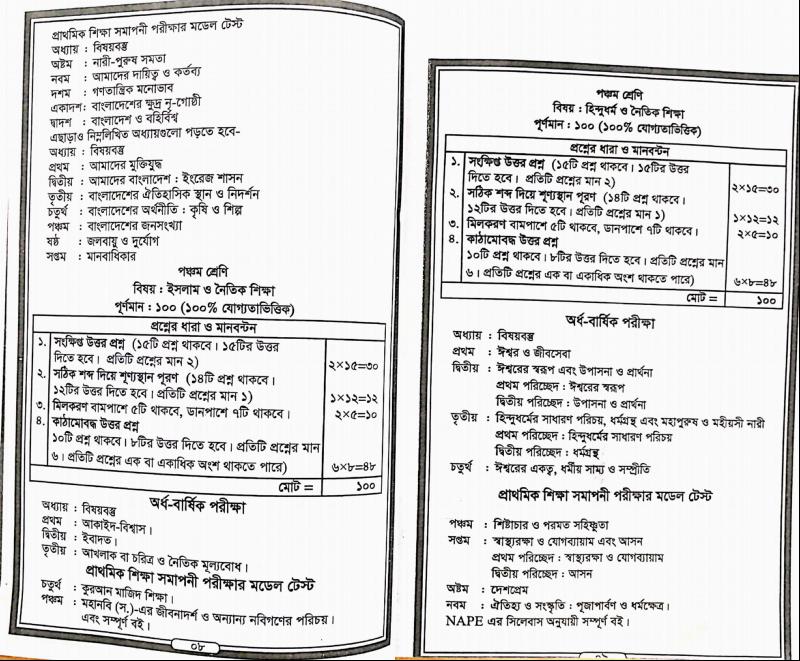 প্রাথমিক শিক্ষা সমাপনী পরীক্ষার মডেল টেস্ট
অধ্যায় : বিষয়বস্তু
অষ্টম : নারী-পুরুষ সমতা
নবম : আমাদের দায়িত্ব ও কর্তব্য
দশম : গণতান্ত্রিক মনোভাব
একাদশ: বাংলাদেশের ক্ষুদ্র নৃ-গোষ্ঠী
দ্বাদশ : বাংলাদেশ ও বহির্বিশ্ব
এছাড়াও নিম্নলিখিত অধ্যায়গুলো পড়তে হবে-
অধ্যায় : বিষয়বস্তু
প্রথম : আমাদের মুক্তিযুদ্ধ
দ্বিতীয় : আমাদের বাংলাদেশ : ইংরেজ শাসন
তৃতীয় : বাংলাদেশের ঐতিহাসিক স্থান ও নিদর্শন
চতুর্থ : বাংলাদেশের অর্থনীতি : কৃষি ও শিল্প
পঞ্চম : বাংলাদেশের জনসংখ্যা
ষষ্ঠ : জলবায়ু ও দুর্যোগ
সপ্তম : মানবাধিকার
পঞ্চম শ্রেণি
বিষয় : ইসলাম ও নৈতিক শিক্ষা
পূর্ণমান : ১০০ (১০০% যোগ্যতাভিত্তিক)
প্রশ্নের ধারা ও মানবন্টন
১. সংক্ষিপ্ত উত্তর প্রশ্ন (১৫টি প্রশ্ন থাকবে। ১৫টির উত্তর
দিতে হবে। প্রতিটি প্রশ্নের মান ২) ২×১৫=৩০
২. সঠিক শব্দ দিয়ে শূণ্যস্থান পূরণ (১৪টি প্রশ্ন থাকবে।
১২টির উত্তর দিতে হবে। প্রতিটি প্রশ্নের মান ১) ১×১২=১২
৩. মিলকরণ বামপাশে ৫টি থাকবে, ডানপাশে ৭টি থাকবে। ২×৫=১০
৪. কাঠামোবদ্ধ উত্তর প্রশ্ন
১০টি প্রশ্ন থাকবে। ৮টির উত্তর দিতে হবে। প্রতিটি প্রশ্নের মান
৬। প্রতিটি প্রশ্নের এক বা একাধিক অংশ থাকতে পারে) ৬×৮=৪৮
মোট = ১০০
অর্ধ-বার্ষিক পরীক্ষা
অধ্যায় : বিষয়বস্তু
প্রথম : আকাইদ-বিশ্বাস।
দ্বিতীয় : ইবাদত।
তৃতীয় : আখলাক বা চরিত্র ও নৈতিক মূল্যবোধ।
প্রাথমিক শিক্ষা সমাপনী পরীক্ষার মডেল টেস্ট
চতুর্থ : কুরআন মাজিদ শিক্ষা।
পঞ্চম : মহানবি (স.)-এর জীবনাদর্শ ও অন্যান্য নবিগণের পরিচয়।
এবং সম্পূর্ণ বই।
০৮
পঞ্চম শ্রেণি
বিষয় : হিন্দুধর্ম ও নৈতিক শিক্ষা
পূর্ণমান : ১০০ (১০০% যোগ্যতাভিত্তিক)
প্রশ্নের ধারা ও মানবন্টন
১. সংক্ষিপ্ত উত্তর প্রশ্ন (১৫টি প্রশ্ন থাকবে। ১৫টির উত্তর
দিতে হবে। প্রতিটি প্রশ্নের মান ২) ২×১৫=৩০
২. সঠিক শব্দ দিয়ে শূণ্যস্থান পূরণ (১৪টি প্রশ্ন থাকবে।
১২টির উত্তর দিতে হবে। প্রতিটি প্রশ্নের মান ১) ১×১২=১২
৩. মিলকরণ বামপাশে ৫টি থাকবে, ডানপাশে ৭টি থাকবে। ২×৫=১০
৪. কাঠামোবদ্ধ উত্তর প্রশ্ন
১০টি প্রশ্ন থাকবে। ৮টির উত্তর দিতে হবে। প্রতিটি প্রশ্নের মান
৬। প্রতিটি প্রশ্নের এক বা একাধিক অংশ থাকতে পারে) ৬×৮=৪৮
মোট = ১০০
অর্ধ-বার্ষিক পরীক্ষা
অধ্যায় : বিষয়বস্তু
প্রথম : ঈশ্বর ও জীবসেবা
দ্বিতীয় : ঈশ্বরের স্বরূপ এবং উপাসনা ও প্রার্থনা
প্রথম পরিচ্ছেদ : ঈশ্বরের স্বরূপ
দ্বিতীয় পরিচ্ছেদ : উপাসনা ও প্রার্থনা
তৃতীয় : হিন্দুধর্মের সাধারণ পরিচয়, ধর্মগ্রন্থ এবং মহাপুরুষ ও মহীয়সী নারী
প্রথম পরিচ্ছেদ : হিন্দুধর্মের সাধারণ পরিচয়
দ্বিতীয় পরিচ্ছেদ : ধর্মগ্রন্থ
চতুর্থ : ঈশ্বরের একত্ব, ধর্মীয় সাম্য ও সম্প্রীতি
প্রাথমিক শিক্ষা সমাপনী পরীক্ষার মডেল টেস্ট
পঞ্চম : শিষ্টাচার ও পরমত সহিষ্ণুতা
সপ্তম : স্বাস্থ্যরক্ষা ও যোগব্যায়াম এবং আসন
প্রথম পরিচ্ছেদ : স্বাস্থ্যরক্ষা ও যোগব্যায়াম
দ্বিতীয় পরিচ্ছেদ : আসন
অষ্টম : দেশপ্রেম
নবম : ঐতিহ্য ও সংস্কৃতি : পূজাপার্বণ ও ধর্মক্ষেত্র।
NAPE এর সিলেবাস অনুযায়ী সম্পূর্ণ বই।